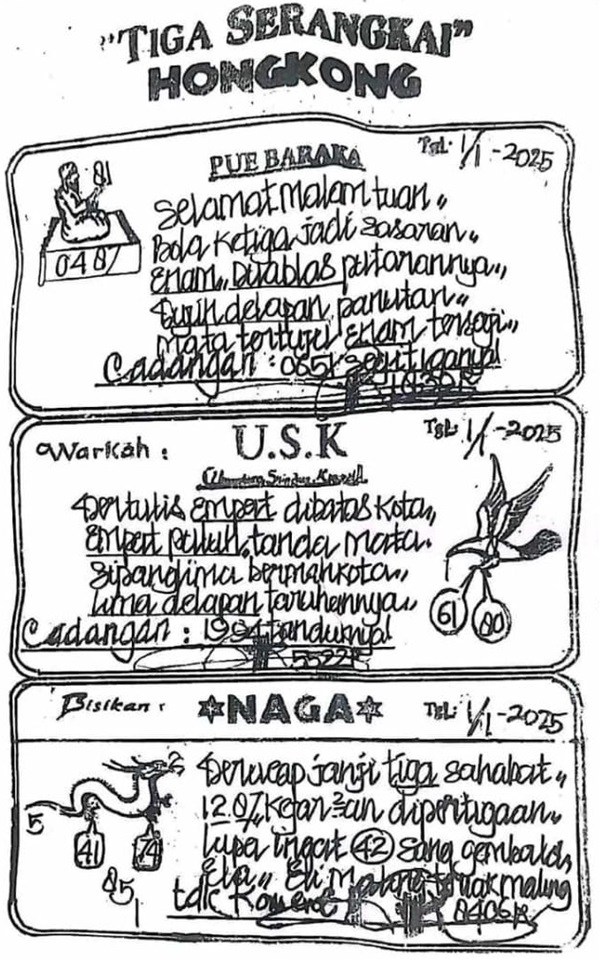 "TIGA SERANGKAI"
HONGKONG
PUE BARAKA
Tgl. 1/1 - 2025
81
0487
Selamat malam tuan"
Bola ketiga jadi sasaran"
Enam,, Duablas putarannya,,
Dujih delapan panutan"
mata tertuju Enam tersaji,,
Cadangan : 0651 segitiganya!
Warkah :
U.S.K
Tgl: 1/1 -2025
Tertulis empat dibatas kota,,
Empat puluh, tanda mata.
Sipanglima bermahkota,,
lima delapan taruhannya,,
61
80
Cadangan : 1994 tandusnya!
5522
Bisikan :
NAGA
Tgl: 1/1 -2025
Terucap janji tiga sahabat"
12.07,, kejar²an dipertigaan,,
lupa ingat 42 sang gembala,,
5
41
74
851